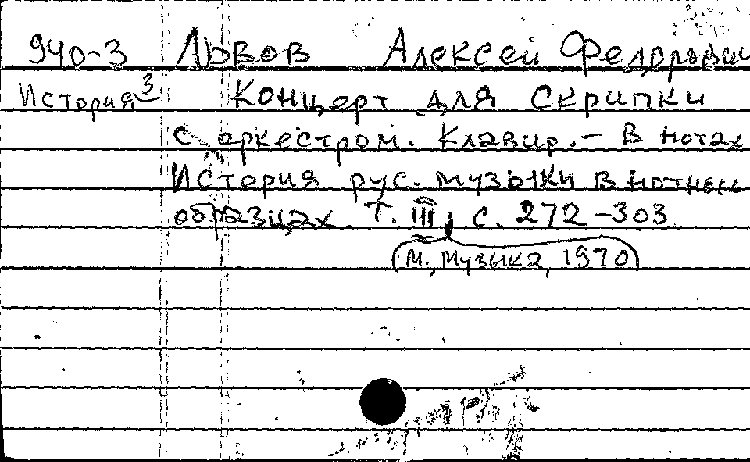 940-3 Львов Алексей Федорович
История 3 Концерт для скрипки
с оркестром. Клавир. - В нотах
История рус. музыки в нотных
образцах. Т. III, с. 272-303
(М., Музыка, 1970)